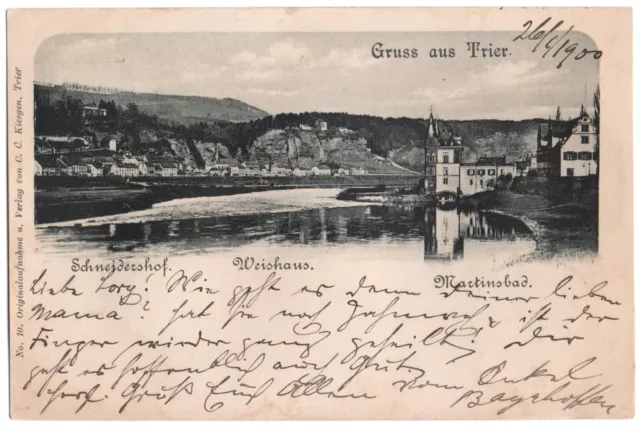 Gruss aus Trier.
26/6 1900
No. 10. Originalaufnahme u. Verlag von C. C. Kiesgen, Trier
Schneidershof.
Weishaus.
Martinsbad.
Liebe Lory! Wie geht es denn Deiner lieben
Mama? hat sie noch Zahnweh & ist der
Finger wieder ganz geheilt? Dir
geht es hoffentlich auch gut.
Gruß Euch Allen vom Onkel
Bayrhoffer